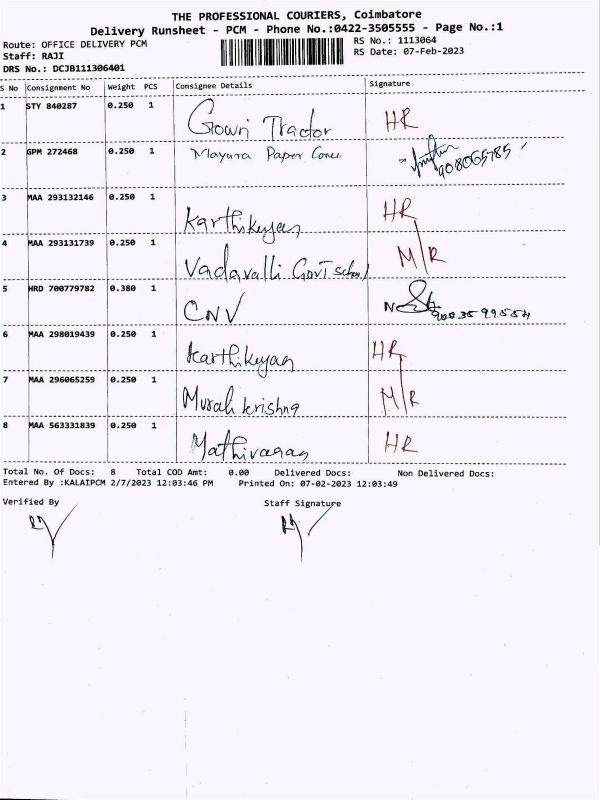 THE PROFESSIONAL COURIERS, Coimbatore
Delivery Runsheet - PCM - Phone No.:0422-3505555 - Page No.:1
Route: OFFICE DELIVERY PCM RS No.: 1113064
Staff: RAJI RS Date: 07-Feb-2023
DRS No.: DCJB111306401
S No Consignment No Weight PCS Consignee Details Signature
1 STY 840287 0.250 1 Gowri Tractor HR
2 GPM 272468 0.250 1 Mayura Paper 9080065785
3 MAA 293132146 0.250 1 Karthikeyan HR
4 MAA 293131739 0.250 1 Vadavalli Govt school M/R
5 HRD 700779782 0.380 1 CNV
6 MAA 298019439 0.250 1 Karthikeyan HR
7 MAA 296065259 0.250 1 Murali krishna M/R
8 MAA 563331839 0.250 1 Mathivanan HR
Total No. Of Docs: 8 Total COD Amt: 0.00 Delivered Docs: Non Delivered Docs:
Entered By :KALAIPCM 2/7/2023 12:03:46 PM Printed On: 07-02-2023 12:03:49
Verified By Staff Signature